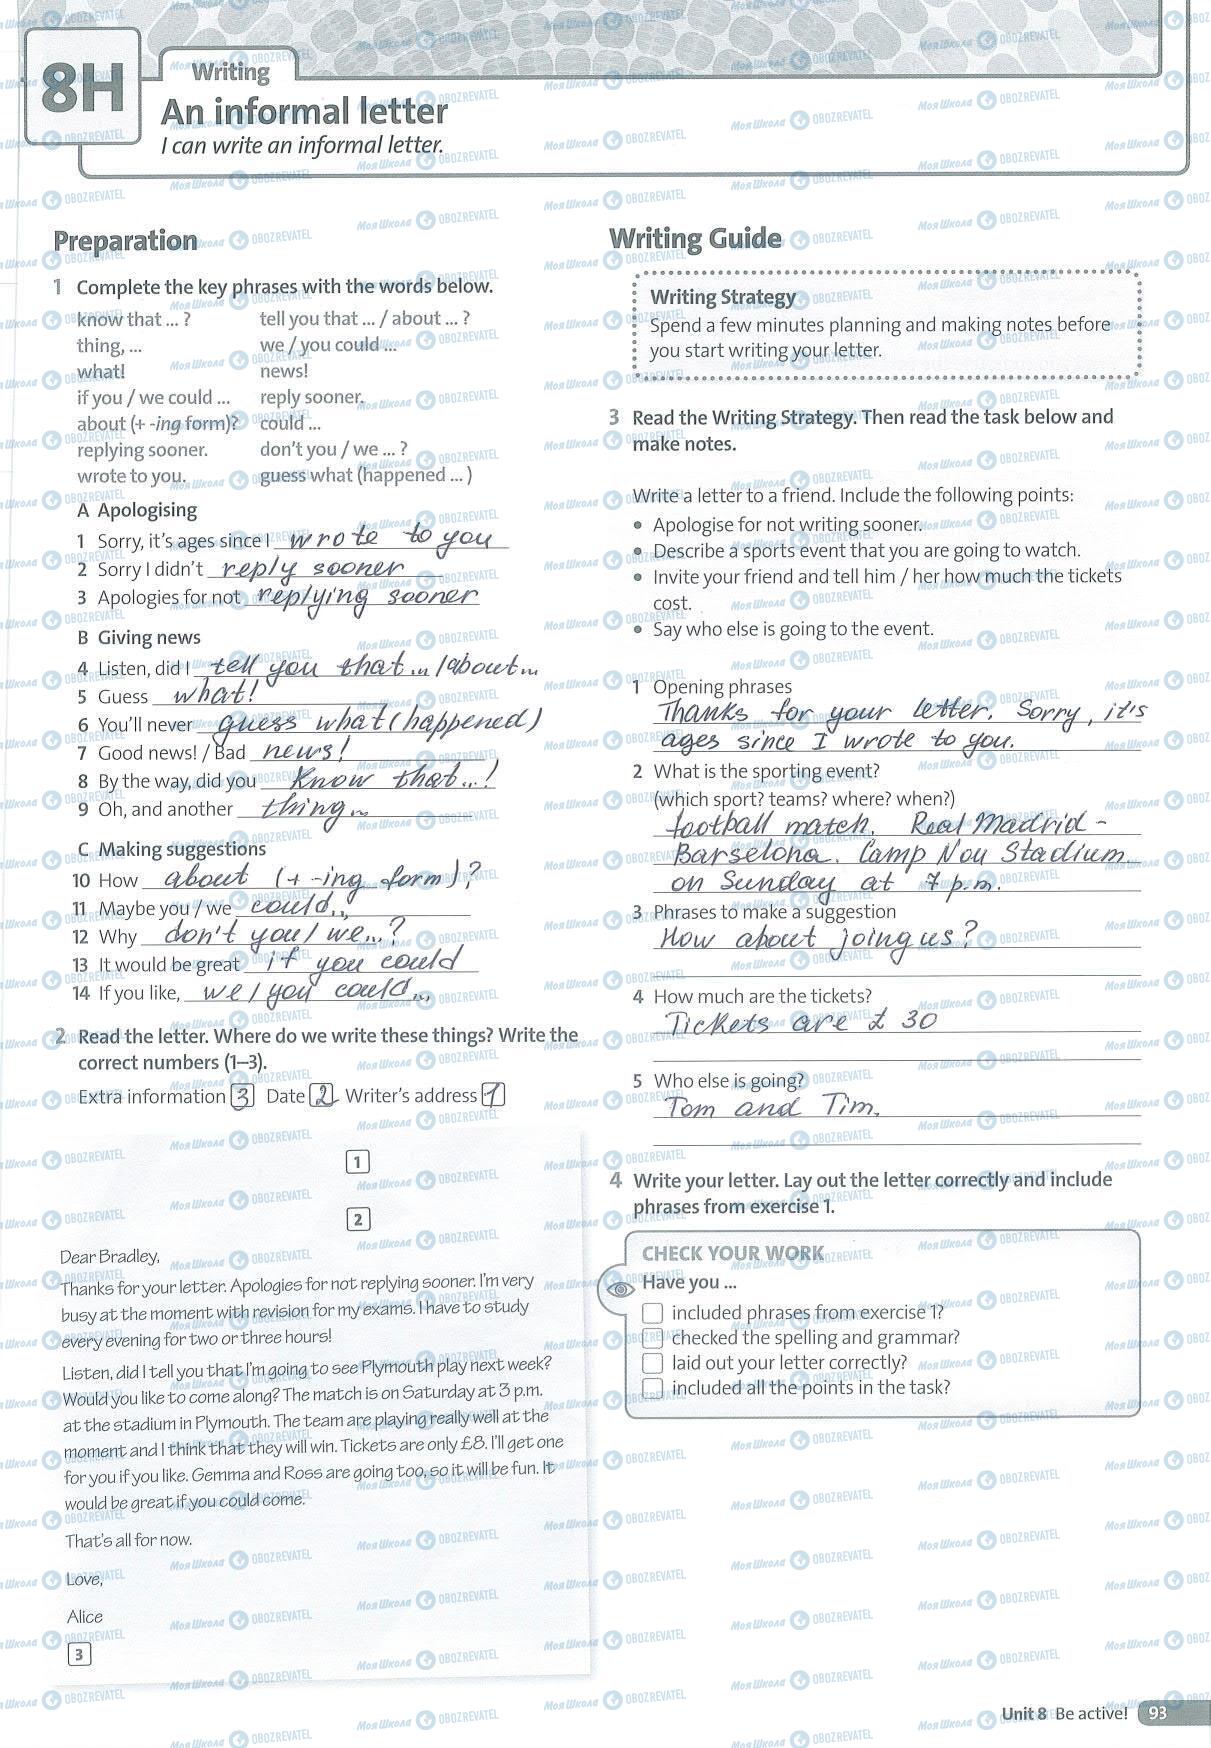 8H
Writing
An informal letter
I can write an informal letter.
Preparation
1 Complete the key phrases with the words below.
know that ... ? tell you that ... / about ... ?
thing, ... we / you could ...
what! news!
if you / we could ... reply sooner.
about (+ -ing form)? could ...
replying sooner. don't you / we ... ?
wrote to you. guess what (happened ... )
A Apologising
1 Sorry, it's ages since I wrote to you
2 Sorry I didn't reply sooner
3 Apologies for not replying sooner
B Giving news
4 Listen, did I tell you that... /about...
5 Guess what!
6 You'll never guess what (happened)
7 Good news! / Bad news!
8 By the way, did you know that...!
9 Oh, and another thing...
C Making suggestions
10 How about (+ -ing form)?
11 Maybe you / we could...
12 Why don't you / we...?
13 It would be great if you could
14 If you like, we / you could...
2 Read the letter. Where do we write these things? Write the
correct numbers (1–3).
Extra information 3 Date 2 Writer's address 1
1
2
Dear Bradley,
Thanks for your letter. Apologies for not replying sooner. I'm very
busy at the moment with revision for my exams. I have to study
every evening for two or three hours!
Listen, did I tell you that I'm going to see Plymouth play next week?
Would you like to come along? The match is on Saturday at 3 p.m.
at the stadium in Plymouth. The team are playing really well at the
moment and I think that they will win. Tickets are only £8. I'll get one
for you if you like. Gemma and Ross are going too, so it will be fun. It
would be great if you could come.
That's all for now.
Love,
Alice
3
Writing Guide
Writing Strategy
Spend a few minutes planning and making notes before
you start writing your letter.
3 Read the Writing Strategy. Then read the task below and
make notes.
Write a letter to a friend. Include the following points:
• Apologise for not writing sooner.
• Describe a sports event that you are going to watch.
• Invite your friend and tell him / her how much the tickets
cost.
• Say who else is going to the event.
1 Opening phrases
Thanks for your letter. Sorry, it's
ages since I wrote to you.
2 What is the sporting event?
(which sport? teams? where? when?)
football match. Real Madrid -
Barselona. Camp Nou Stadium
on Sunday at 7 p.m.
3 Phrases to make a suggestion
How about joing us?
4 How much are the tickets?
Tickets are £ 30
5 Who else is going?
Tom and Tim.
4 Write your letter. Lay out the letter correctly and include
phrases from exercise 1.
CHECK YOUR WORK
Have you ...
included phrases from exercise 1?
checked the spelling and grammar?
laid out your letter correctly?
included all the points in the task?
Unit 8 Be active! 93
МояШкола OBOZREVATEL